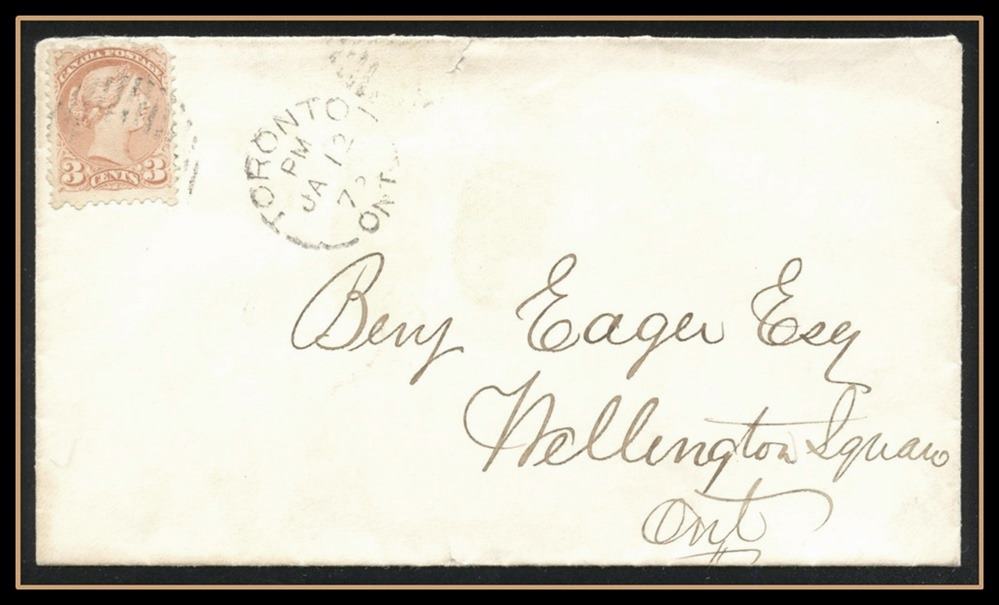 CANADA POSTAGE
3 CENTS 3
TORONTO
PM
JA 12
7
ONT
Benj Eager Esq
Wellington Square
Ont